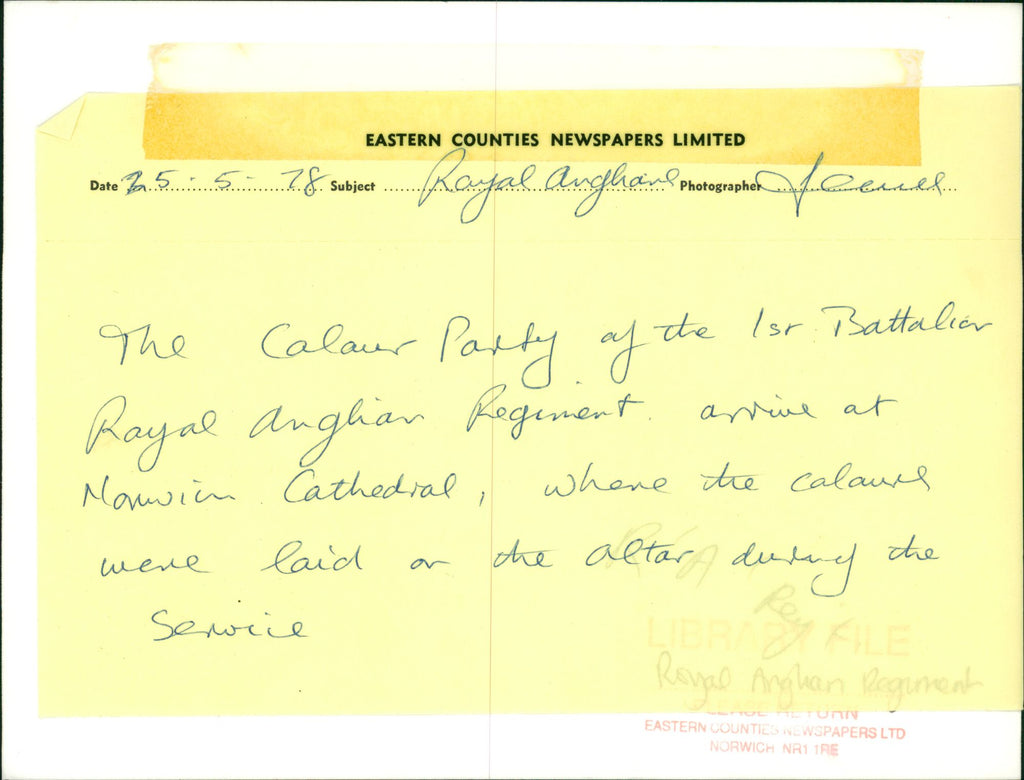 EASTERN COUNTIES NEWSPAPERS LIMITED
Date 25-5-78 Subject Royal Anglians Photographer
The Colour Party of the 1st Battalion
Royal Anglian Regiment. arrive at
Norwich Cathedral, where the colours
were laid on the altar during the
Service
R. A
Reg
LIBRARY FILE
Royal Anglian Regiment
PLEASE RETURN
EASTERN COUNTIES NEWSPAPERS LTD
NORWICH NR1 1RE